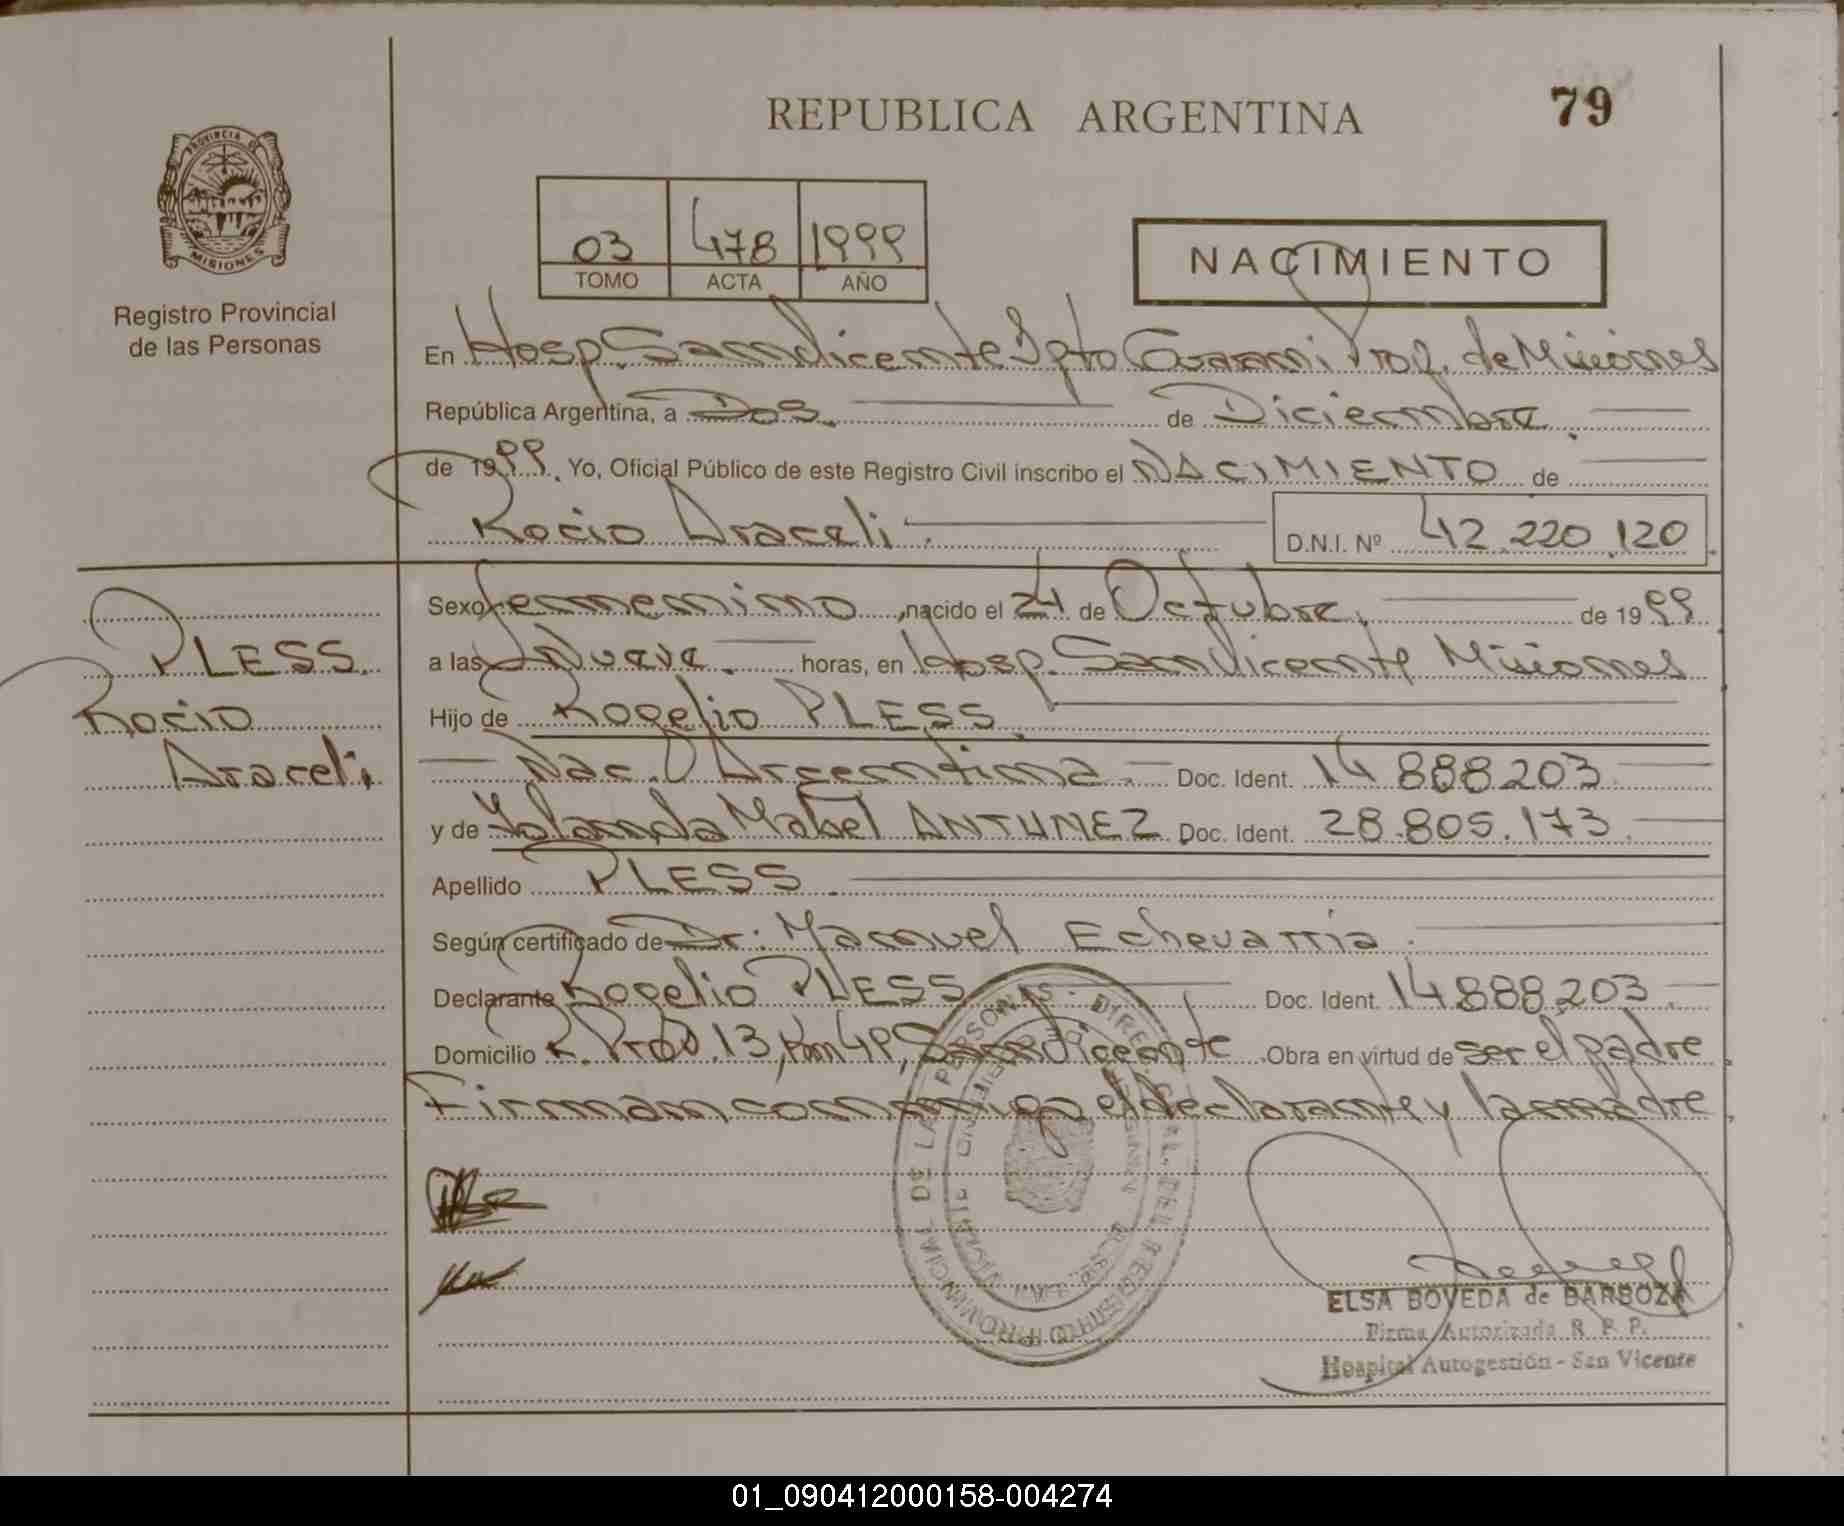 REPUBLICA ARGENTINA
79
PROVINCIA DE
MISIONES
Registro Provincial
de las Personas
03 478 1999
TOMO ACTA AÑO
NACIMIENTO
En Hosp. San Vicente Dpto Guarani Prov. de Misiones
República Argentina, a Dos. de Diciembre.
de 1999. Yo, Oficial Público de este Registro Civil inscribo el NACIMIENTO de
Rocio Araceli. D.N.I. Nº 42.220.120
PLESS
Rocio
Araceli
Sexo femenino, nacido el 24 de Octubre, de 1999
a las Nueve horas, en Hosp. San Vicente Misiones
Hijo de Rogelio PLESS
Nac. Argentina. Doc. Ident. 14.888.203
y de Yolanda Mabel ANTUNEZ Doc. Ident. 28.805.173
Apellido PLESS
Según certificado de Dr. Manuel Echevarria.
Declarante Rogelio PLESS Doc. Ident. 14.888.203
Domicilio R. Prov. 13, Km 49, San Vicente Obra en virtud de ser el padre
Firman conmigo el declarante y la madre
ELSA BOVEDA de BARBOZA
Firma Autorizada R. P. P.
Hospital Autogestión - San Vicente
01_090412000158-004274